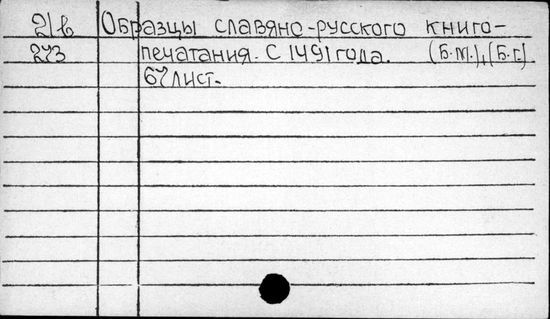 2/в Образцы славяно-русского книго-
273 печатания. С 1491 года. (Б.м.), (Б.г.)
67 лист.